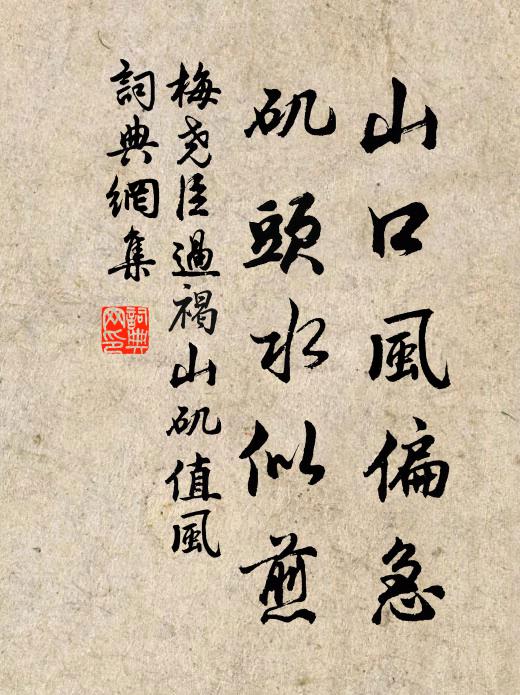 山口風偏急
矶頭水似煎
梅尧臣過褐山矶值風
詞典網集
詞典網印